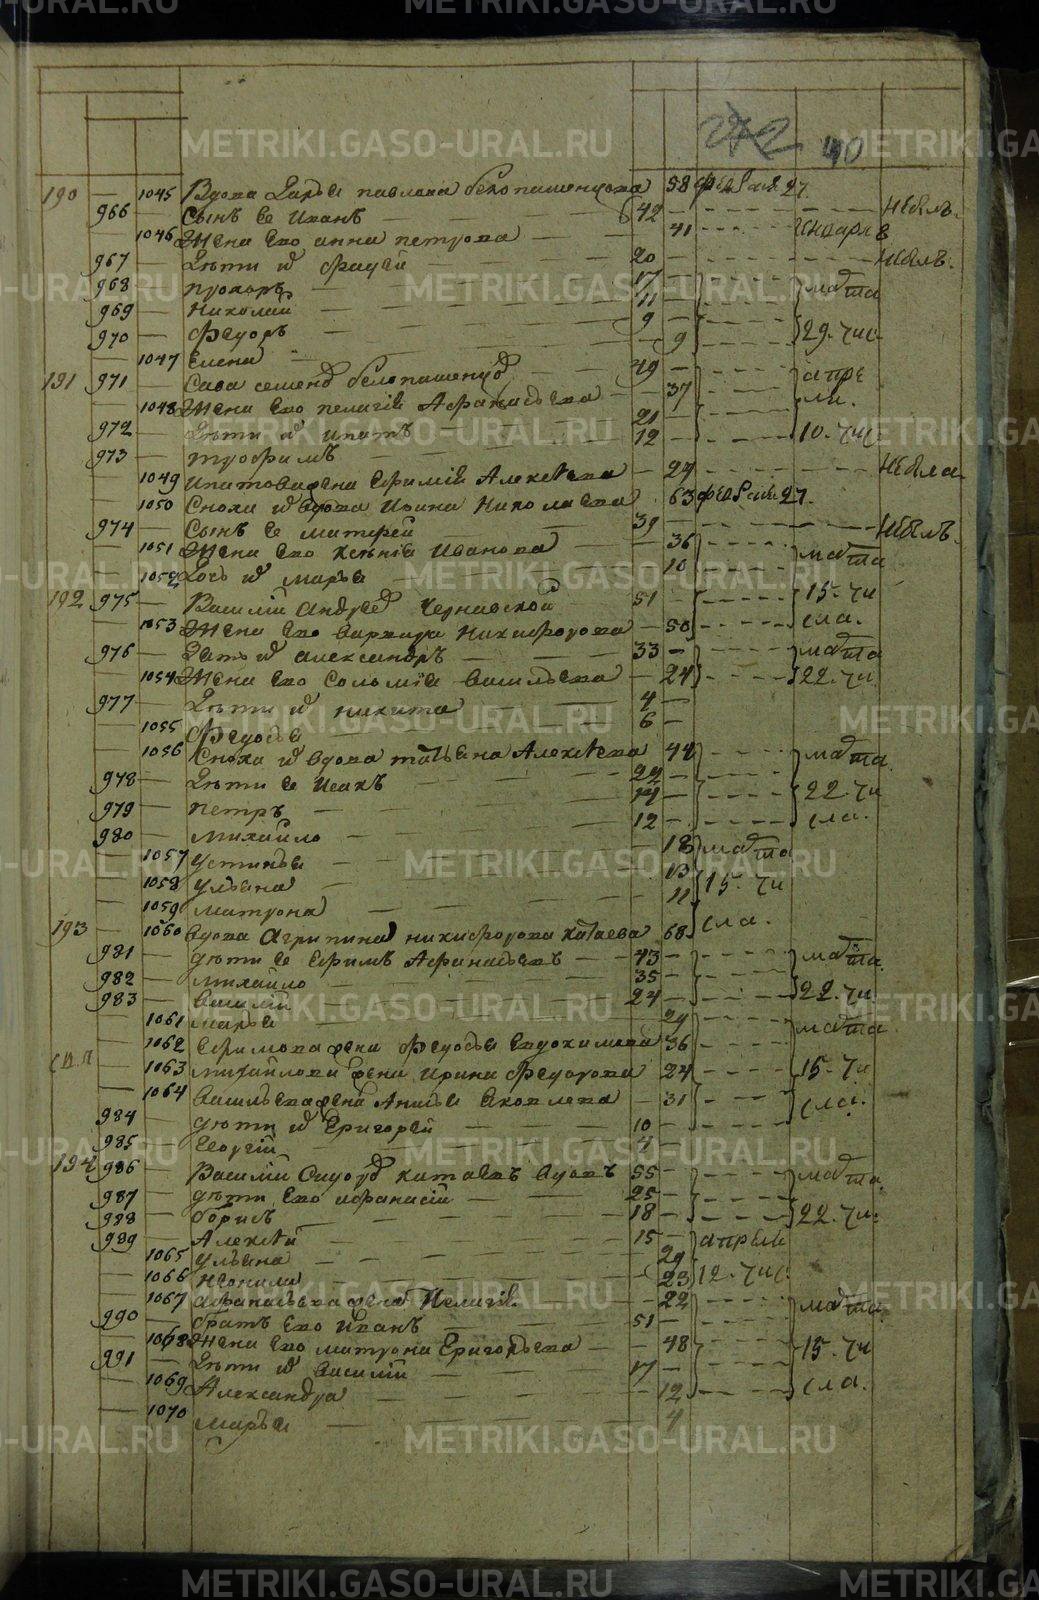 METRIKI.GASO-URAL.RU
272 40
190 — 1045 Вдова Дарья павлова белопашенцова 58 февраля 27
966 — Сынъ Ее Иванъ 42 Небылъ.
— 1046 Жена Ево анна петрова 41 Января
967 — Дѣти их 20 Небылъ.
968 — прохоръ 17 марта
969 — Николай 11
970 — Федоръ 9 29. чис
— 1047 Елена 9
191 971 — Сава семенов белопашенцов 49 апре
— 1048 Жена Ево пелагия Афанасьева 37 ля.
972 — Дѣти их ипатъ 21
973 — трофимъ 12 10. чис
— 1049 ипатова жена Ефимия Алексѣева 24 Небыла
— 1050 Сноха их вдова Ирина Николаева 63 февраля 27.
974 — Сынъ Ее матфей 39 Небылъ.
— 1051 Жена Ево Ксѣния Иванова 36 марта
— 1052 Дочь их марья 10
192 975 — Василий андреев Чернавской 51 15. чи
— 1053 Жена Ево варвара Никифорова 50 сла.
976 — Зять их александръ 33 марта
— 1054 Жена Ево Соломия васильева 24 22. чи
977 — Дѣти их никита 4
— 1055 Федосья 6
— 1056 Сноха их вдова татьяна Алексѣева 44 марта
978 — Дѣти Ее Исакъ 22
979 — петръ 14 22. чи
980 — михайло 12 сла.
— 1057 устинья 18 марта
— 1058 ульяна 13 15. чи
— 1059 матрона 11
193 — 1060 вдова Агрипина никифорова катаева 68 сла.
981 — дѣти Ее Ефимъ Афанасьевъ 43 марта
982 — михайло 35
983 — василий 24 22. чи
— 1061 марья 29 марта
— 1062 Ефимова жена Федосья Евдокимова 36
— 1063 михайлова жена Ирина Федорова 24 15. чи
— 1064 васильева жена Анисья Яковлева 31 сла.
984 — дѣти их Григорей 10
985 — Георгий 4
194 986 — Василий Сидоров катаевъ вдовъ 55 марта
987 — дѣти Ево афанасий 25
988 — борисъ 18 22. чи
989 — Алексѣй 15 апреля
— 1065 ульяна 29
— 1066 неонила 23 12. чис
— 1067 афанасьева жена Пелагия 22 марта
990 — братъ Ево Иванъ 51
— 1068 Жена Ево матрона Григорьева 48 15. чи
991 — Дѣти их василий 17
— 1069 Александра 12 сла.
— 1070 марья 4